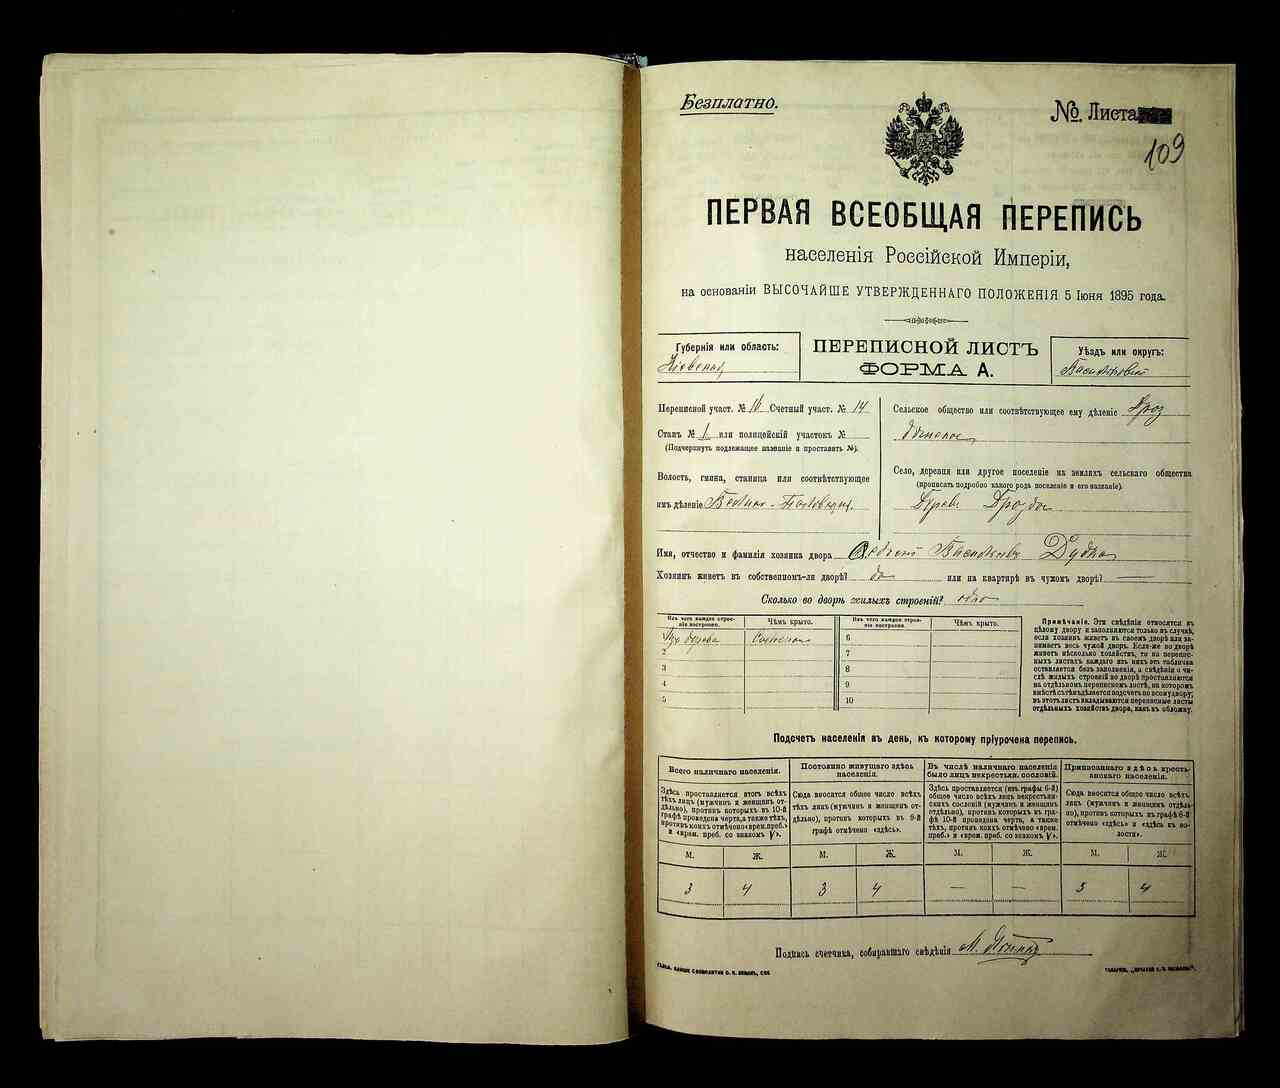 Безплатно.
№. Листа
109
ПЕРВАЯ ВСЕОБЩАЯ ПЕРЕПИСЬ
населенія Россійской Имперіи,
на основаніи ВЫСОЧАЙШЕ УТВЕРЖДЕННАГО ПОЛОЖЕНІЯ 5 Іюня 1895 года.
Губернія или область:
Кіевская
ПЕРЕПИСНОЙ ЛИСТЪ
ФОРМА А.
Уѣздъ или округъ:
Васильковскій
Переписной участ. № 16 Счетный участ. № 14
Станъ № 1 или полицейскій участокъ №
(Подчеркнуть подлежащее названіе и проставить №).
Волость, гмина, станица или соотвѣтствующее
имъ дѣленіе
Сельское общество или соотвѣтствующее ему дѣленіе Дроз
донское
Село, деревня или другое поселеніе на земляхъ сельскаго общества
(прописать подробно какого рода поселеніе и его названіе).
Дрозды
Имя, отчество и фамилія хозяина двора Васильевъ Дудка
Хозяинъ живетъ въ собственном-ли дворѣ? да или на квартирѣ въ чужомъ дворѣ? —
Сколько во дворѣ жилыхъ строеній? одно
Изъ чего каждое строеніе построено.
Чѣмъ крыто.
Изъ чего каждое строеніе построено.
Чѣмъ крыто.
1 Изъ дерева Соломою
2
3
4
5
6
7
8
9
10
Примѣчаніе. Эти свѣдѣнія относятся къ
цѣлому двору и заполняются только въ случаѣ,
если хозяинъ живетъ въ своемъ дворѣ или за-
нимаетъ весь чужой дворъ. Если-же во дворѣ
живетъ нѣсколько хозяйствъ, то на перепис-
ныхъ листахъ каждаго изъ нихъ эта табличка
оставляется безъ заполненія, а свѣдѣнія о чи-
слѣ жилыхъ строеній во дворѣ проставляются
на отдѣльномъ переписномъ листѣ, на которомъ
вмѣстѣ съ тѣмъ дѣлается подсчетъ по всему двору;
въ этотъ листъ вкладываются переписные листы
отдѣльныхъ хозяйствъ двора, какъ въ обложку.
Подсчетъ населенія въ день, къ которому пріурочена перепись.
Всего наличнаго населенія.
Здѣсь проставляется итогъ всѣхъ
тѣхъ лицъ (мужчинъ и женщинъ от-
дѣльно), противъ которыхъ въ 10-й
графѣ проведена черта, а также тѣхъ,
противъ коихъ отмѣчено «врем. преб.»
и «врем. преб. со знакомъ V».
Постоянно живущаго здѣсь
населенія.
Сюда вносится общее число всѣхъ
тѣхъ лицъ (мужчинъ и женщинъ от-
дѣльно), противъ которыхъ въ 9-й
графѣ отмѣчено «здѣсь».
Въ числѣ наличнаго населенія
было лицъ некрестьян. сословій.
Здѣсь проставляется (изъ графы 6-й)
общее число всѣхъ лицъ некрестьян-
скихъ сословій (мужчинъ и женщинъ
отдѣльно), противъ которыхъ въ гра-
фѣ 10-й проведена черта, а также
тѣхъ, противъ коихъ отмѣчено «врем.
преб.» и «врем. преб. со знакомъ V».
Приписаннаго здѣсь кресть-
янскаго населенія.
Сюда вносится общее число всѣхъ
лицъ (мужчинъ и женщинъ отдѣль-
но), противъ которыхъ въ графѣ 8-й
отмѣчено «здѣсь» и «здѣсь къ во-
лости».
М. Ж. М. Ж. М. Ж. М. Ж.
3 4 3 4 — — 3 4
Подпись счетчика, собиравшаго свѣдѣнія